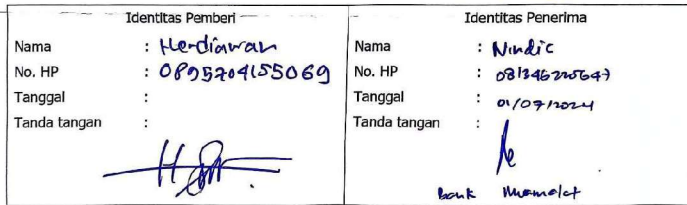 Identitas Pemberi
Nama : Herdiawan
No. HP : 0895704155069
Tanggal :
Tanda tangan :
Identitas Penerima
Nama : Nindic
No. HP :
Tanggal : 01/07/2024
Tanda tangan :
Bank Muamalat